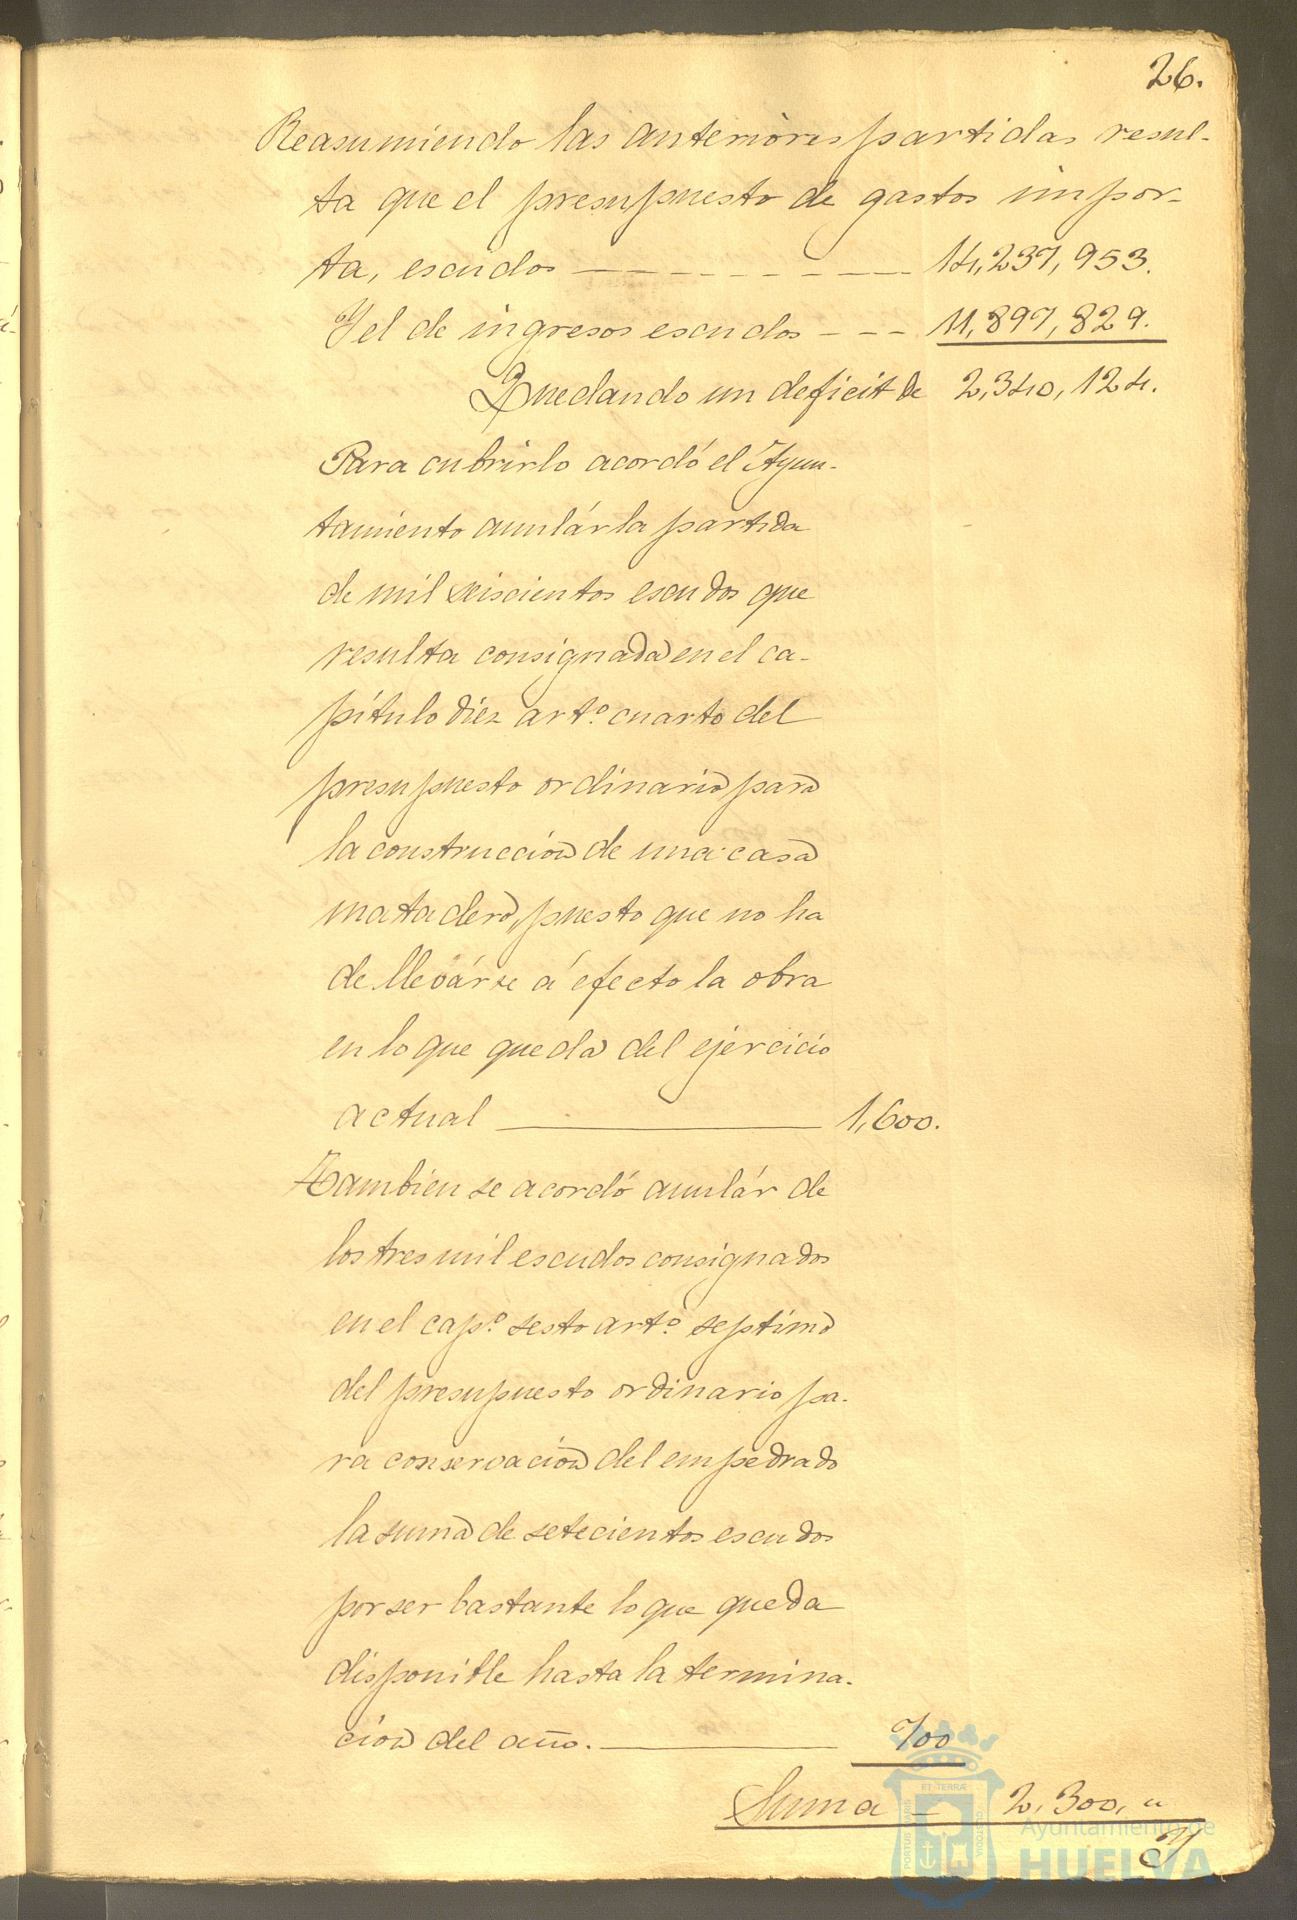 26.
Reasumiendo las anteriores partidas resul-
ta que el presupuesto de gastos impor-
ta, escudos 14,237,953.
Y el de ingresos escudos 11,897,829.
Quedando un deficit de 2,340,124.
Para cubrirlo acordó el Ayun-
tamiento anulár la partida
de mil seiscientos escudos que
resulta consignada en el ca-
pítulo diez artº cuarto del
presupuesto ordinario para
la construccion de una casa
matadero, puesto que no ha
de llevárse á efecto la obra
en lo que queda del ejercicio
actual 1,600.
Tambien se acordó anulár de
los tres mil escudos consignados
en el capº sesto artº septimo
del presupuesto ordinario pa-
ra conservacion del empedrado
la suma de setecientos escudos
por ser bastante lo que queda
disponible hasta la termina-
cion del año. 700
Suma 2,300, "
Y
ET TERRÆ
PORTUS MARIS
CUSTODIA
Ayuntamiento de
HUELVA